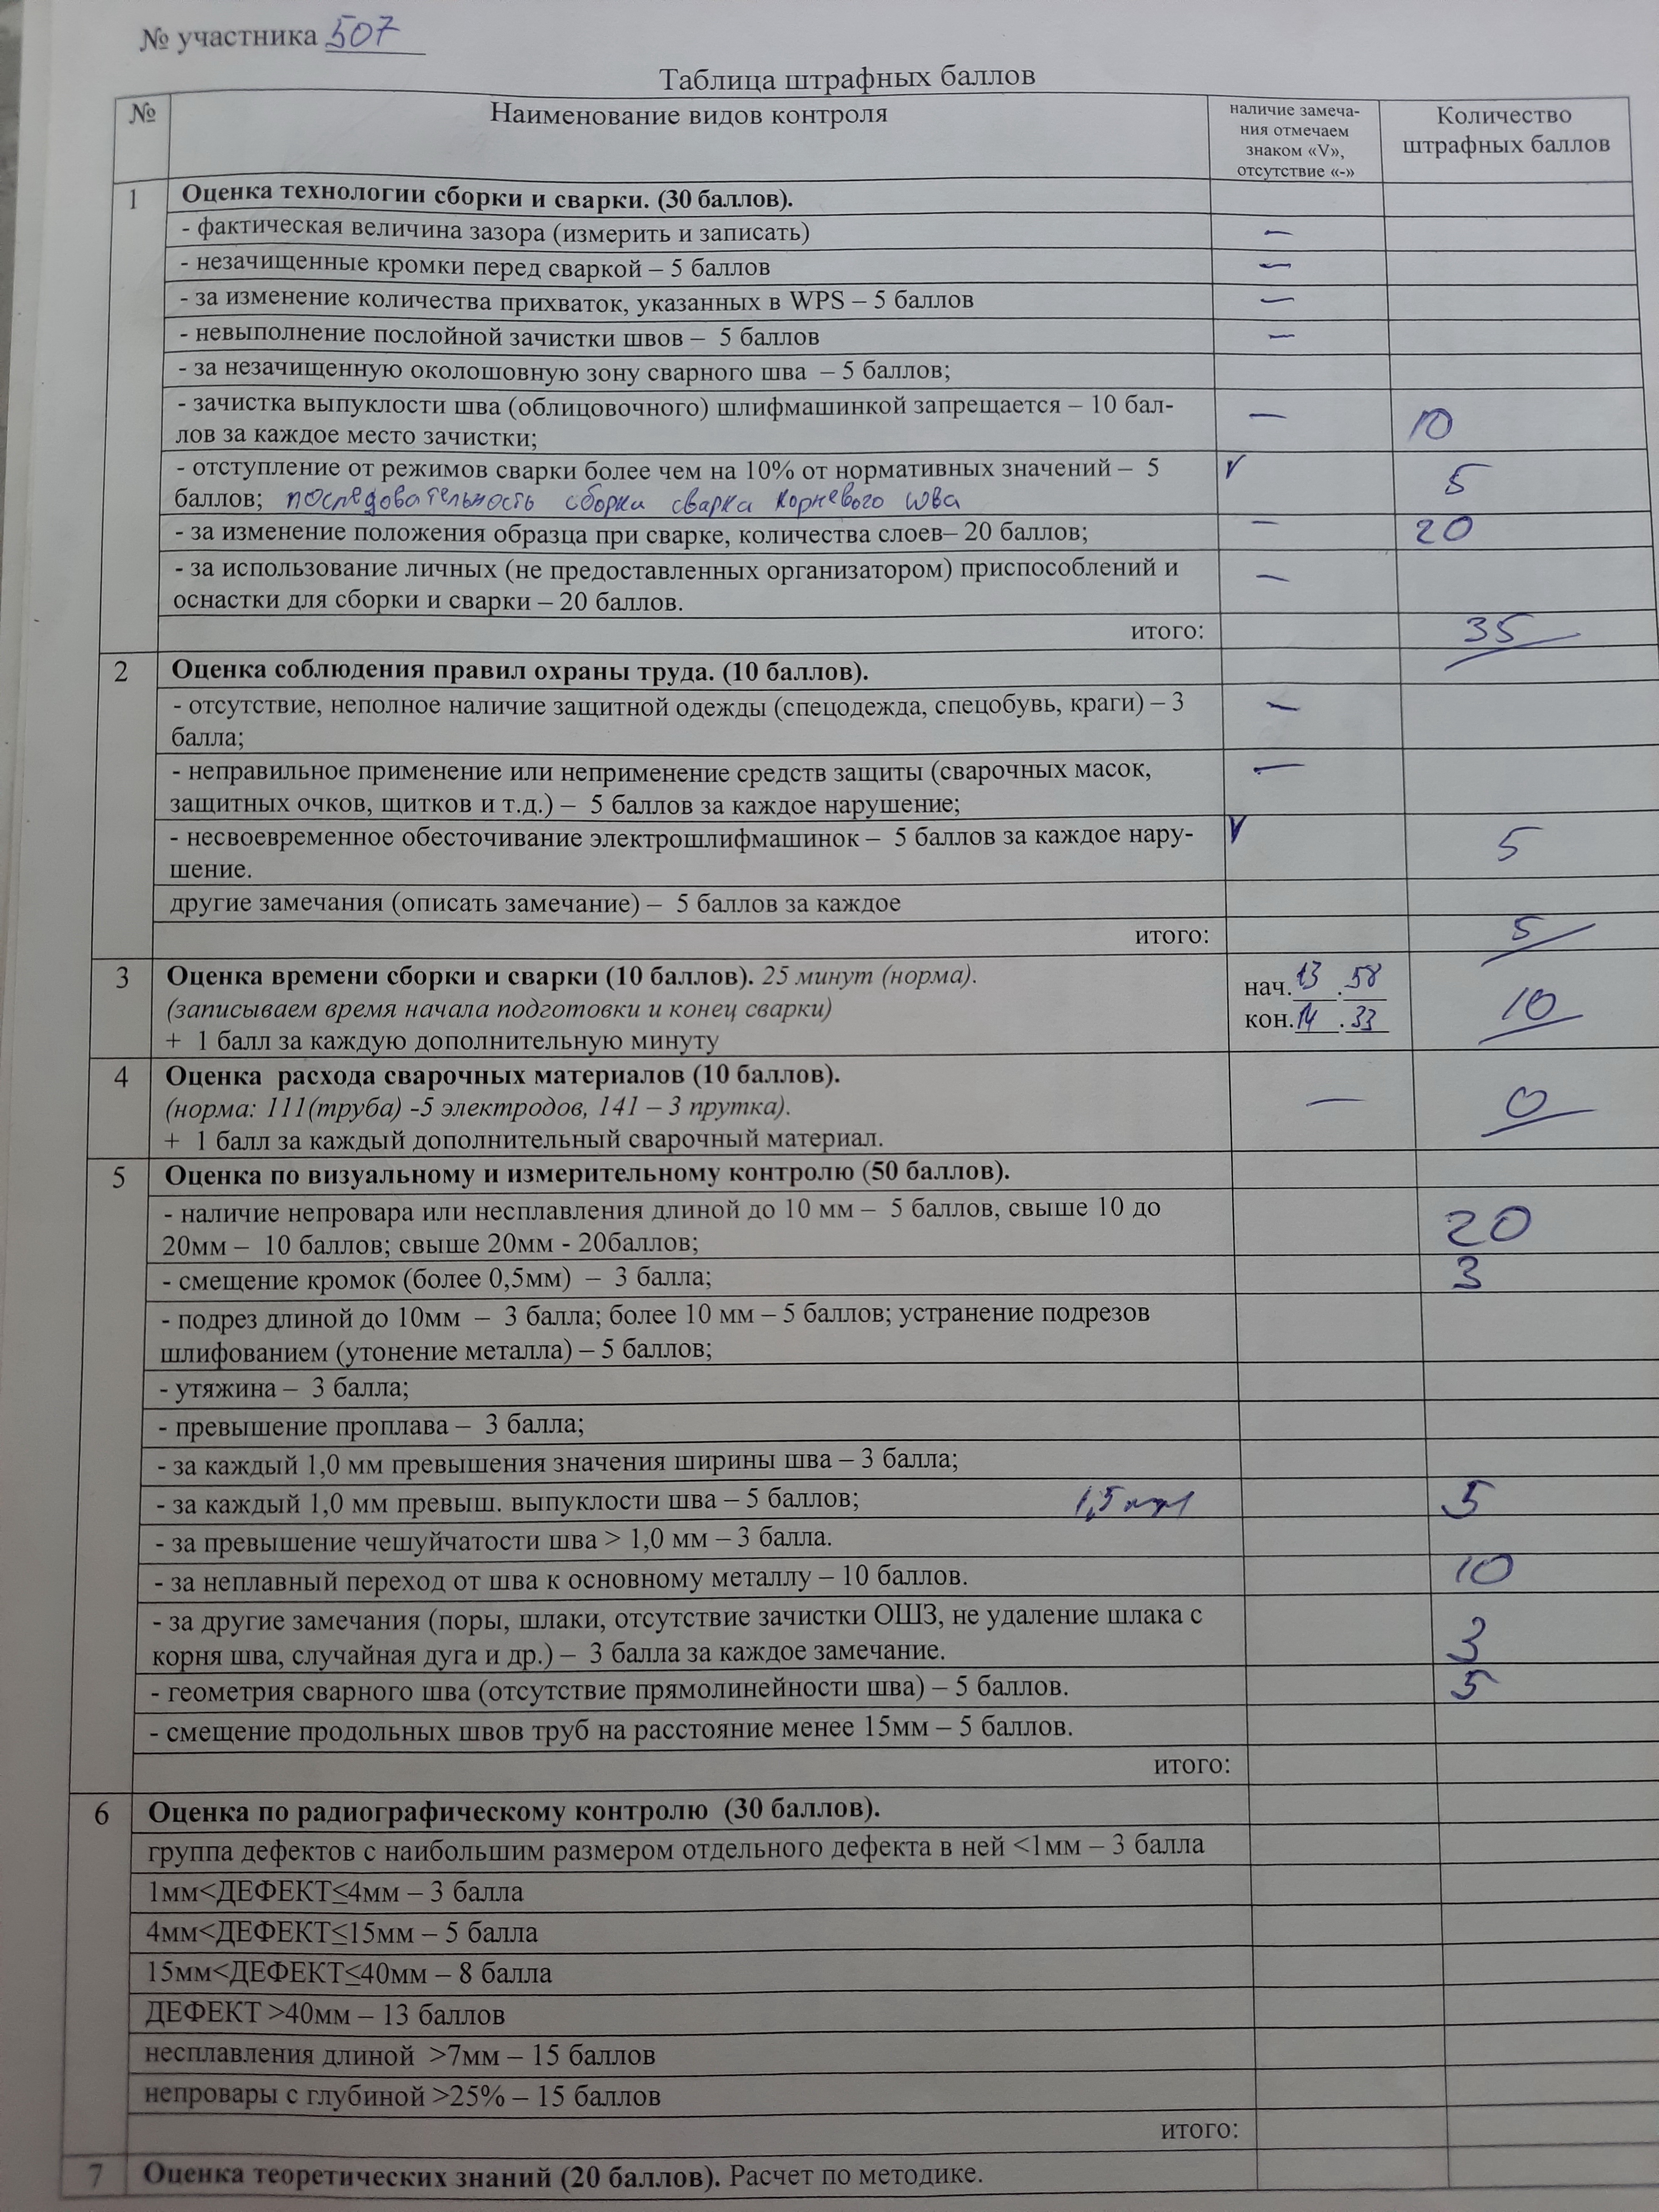 № участника 507
Таблица штрафных баллов
№
Наименование видов контроля
наличие замеча-
ния отмечаем
знаком «V»,
отсутствие «-»
Количество
штрафных баллов
1
Оценка технологии сборки и сварки. (30 баллов).
- фактическая величина зазора (измерить и записать) —
- незачищенные кромки перед сваркой – 5 баллов —
- за изменение количества прихваток, указанных в WPS – 5 баллов —
- невыполнение послойной зачистки швов – 5 баллов —
- за незачищенную околошовную зону сварного шва – 5 баллов;
- зачистка выпуклости шва (облицовочного) шлифмашинкой запрещается – 10 бал-
лов за каждое место зачистки; — 10
- отступление от режимов сварки более чем на 10% от нормативных значений – 5 V 5
баллов; последовательность сборки сварка корневого шва
- за изменение положения образца при сварке, количества слоев– 20 баллов; — 20
- за использование личных (не предоставленных организатором) приспособлений и —
оснастки для сборки и сварки – 20 баллов.
итого: 35
2
Оценка соблюдения правил охраны труда. (10 баллов).
- отсутствие, неполное наличие защитной одежды (спецодежда, спецобувь, краги) – 3 —
балла;
- неправильное применение или неприменение средств защиты (сварочных масок, —
защитных очков, щитков и т.д.) – 5 баллов за каждое нарушение;
- несвоевременное обесточивание электрошлифмашинок – 5 баллов за каждое нару- V 5
шение.
другие замечания (описать замечание) – 5 баллов за каждое
итого: 5
3
Оценка времени сборки и сварки (10 баллов). 25 минут (норма).
(записываем время начала подготовки и конец сварки)
+ 1 балл за каждую дополнительную минуту
нач. 13 . 58
кон. 14 . 33
10
4
Оценка расхода сварочных материалов (10 баллов).
(норма: 111(труба) -5 электродов, 141 – 3 прутка). — 0
+ 1 балл за каждый дополнительный сварочный материал.
5
Оценка по визуальному и измерительному контролю (50 баллов).
- наличие непровара или несплавления длиной до 10 мм – 5 баллов, свыше 10 до
20мм – 10 баллов; свыше 20мм - 20баллов; 20
- смещение кромок (более 0,5мм) – 3 балла; 3
- подрез длиной до 10мм – 3 балла; более 10 мм – 5 баллов; устранение подрезов
шлифованием (утонение металла) – 5 баллов;
- утяжина – 3 балла;
- превышение проплава – 3 балла;
- за каждый 1,0 мм превышения значения ширины шва – 3 балла;
- за каждый 1,0 мм превыш. выпуклости шва – 5 баллов; 1,5 5
- за превышение чешуйчатости шва > 1,0 мм – 3 балла.
- за неплавный переход от шва к основному металлу – 10 баллов. 10
- за другие замечания (поры, шлаки, отсутствие зачистки ОШЗ, не удаление шлака с
корня шва, случайная дуга и др.) – 3 балла за каждое замечание. 3
- геометрия сварного шва (отсутствие прямолинейности шва) – 5 баллов. 5
- смещение продольных швов труб на расстояние менее 15мм – 5 баллов.
итого:
6
Оценка по радиографическому контролю (30 баллов).
группа дефектов с наибольшим размером отдельного дефекта в ней <1мм – 3 балла
1мм<ДЕФЕКТ≤4мм – 3 балла
4мм<ДЕФЕКТ≤15мм – 5 балла
15мм<ДЕФЕКТ≤40мм – 8 балла
ДЕФЕКТ >40мм – 13 баллов
несплавления длиной >7мм – 15 баллов
непровары с глубиной >25% – 15 баллов
итого:
7
Оценка теоретических знаний (20 баллов). Расчет по методике.